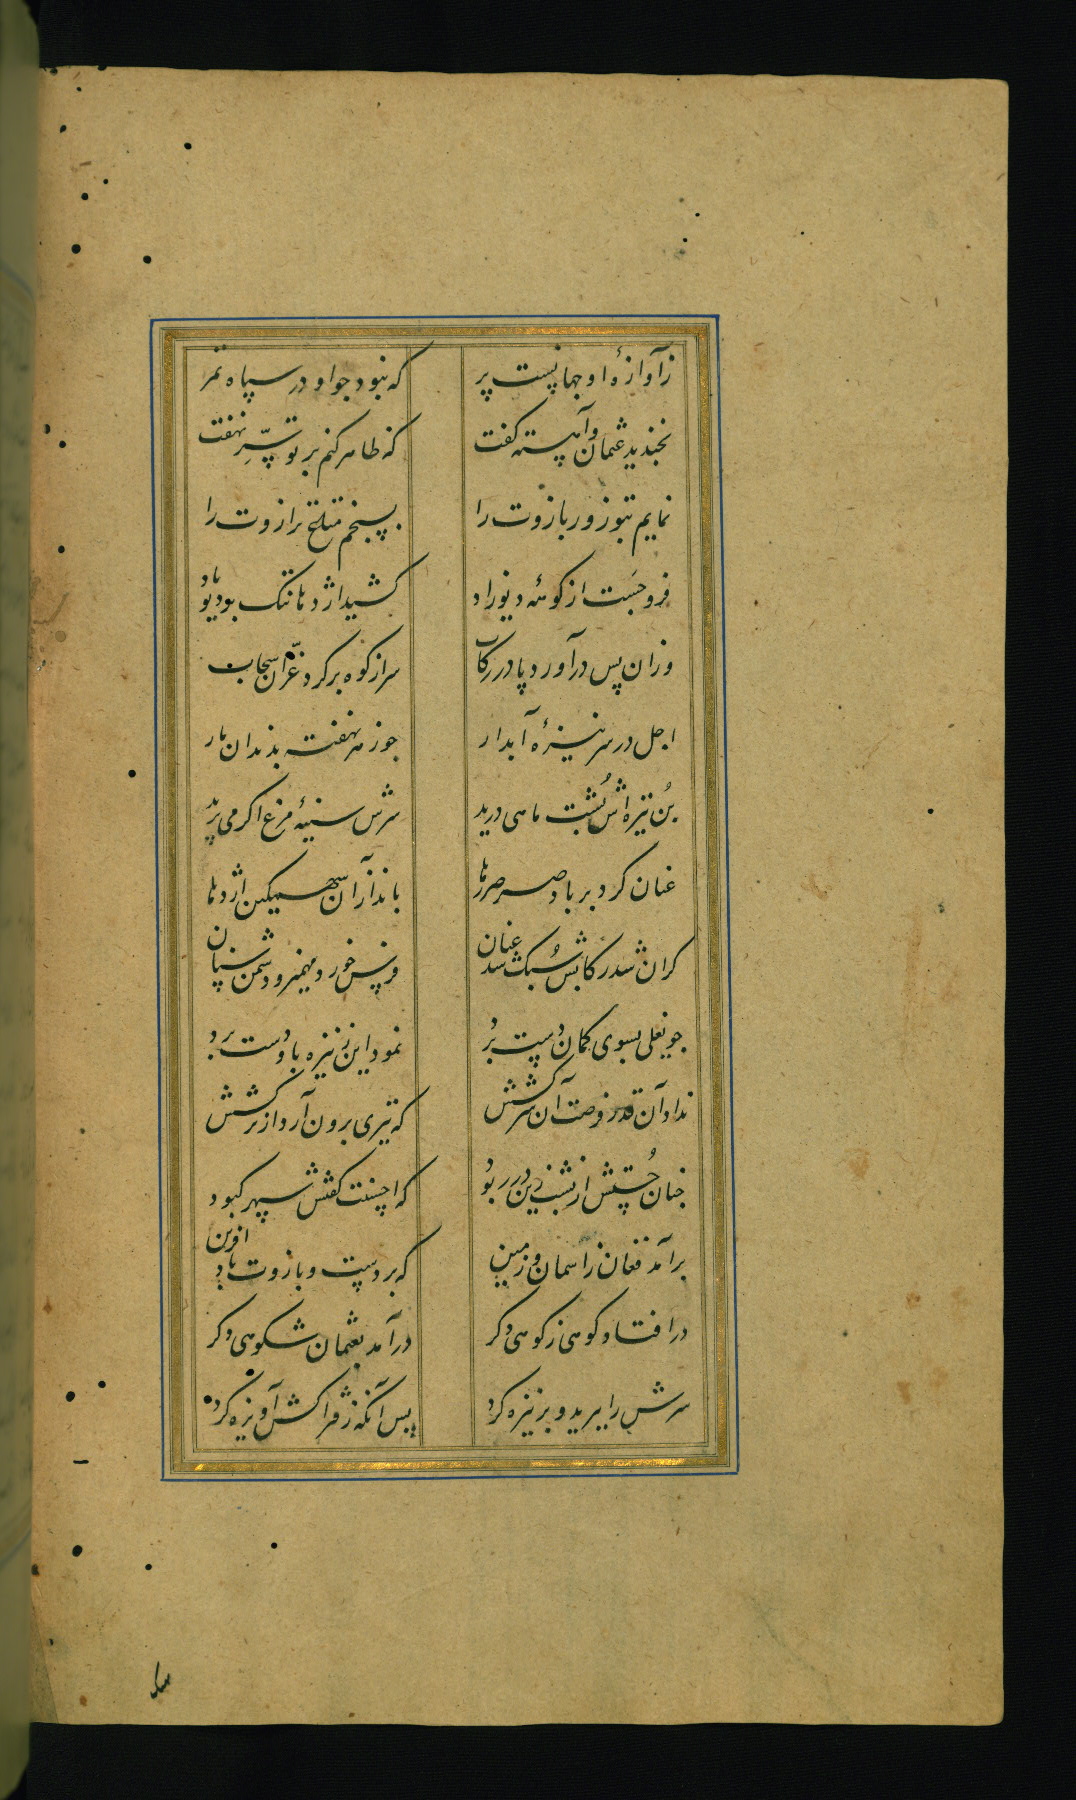 زآوازهٔ او جهانست پر که نبود جو او در سپاه تمر
بخندید عثمان و آهسته کفت که ظاهر کنم بر تو سِرّ نهفت
نمایم بتو زور بازوت را بسنجم ترازوت را
فرو جَست از کوههٔ دیوراد کشید اژدها تنک بود یو باد
وزان پس درآورد پا در رکاب سر از کوه بر کرد غرّان سحاب
اجل در سر نیزهٔ آبدار جو زهر نهفته بدندان مار
بُن نیزه اش پُشت ماهی درید سرش سینهٔ مرغ اکر می پرید
عنان کرد بر باد صرصر رها باندآز آن سهمکین اژدها
کران شد رکابش سُبک شد عنان فرس خورد مهمیز و دشمن سنان
جو یعلی بسوی کمان دست بُرد نمود این ز نیزه باو دست برد
نداد آن قدر فرصت آن سرکشش که تیری برون آرد از ترکشش
جنان جُستش از پشت زین در ربود که احسنت کفتش سپهر کبود
برآمد فغان ز آسمان و زمین که بر دست و بازوت باد افرین
در افتاد کوهی ز کوهی دکر درآمد بعثمان شکوهی دکر
سرش را ببرید و بر نیزه کرد پس آنکه ز فتراکش آویزه کرد